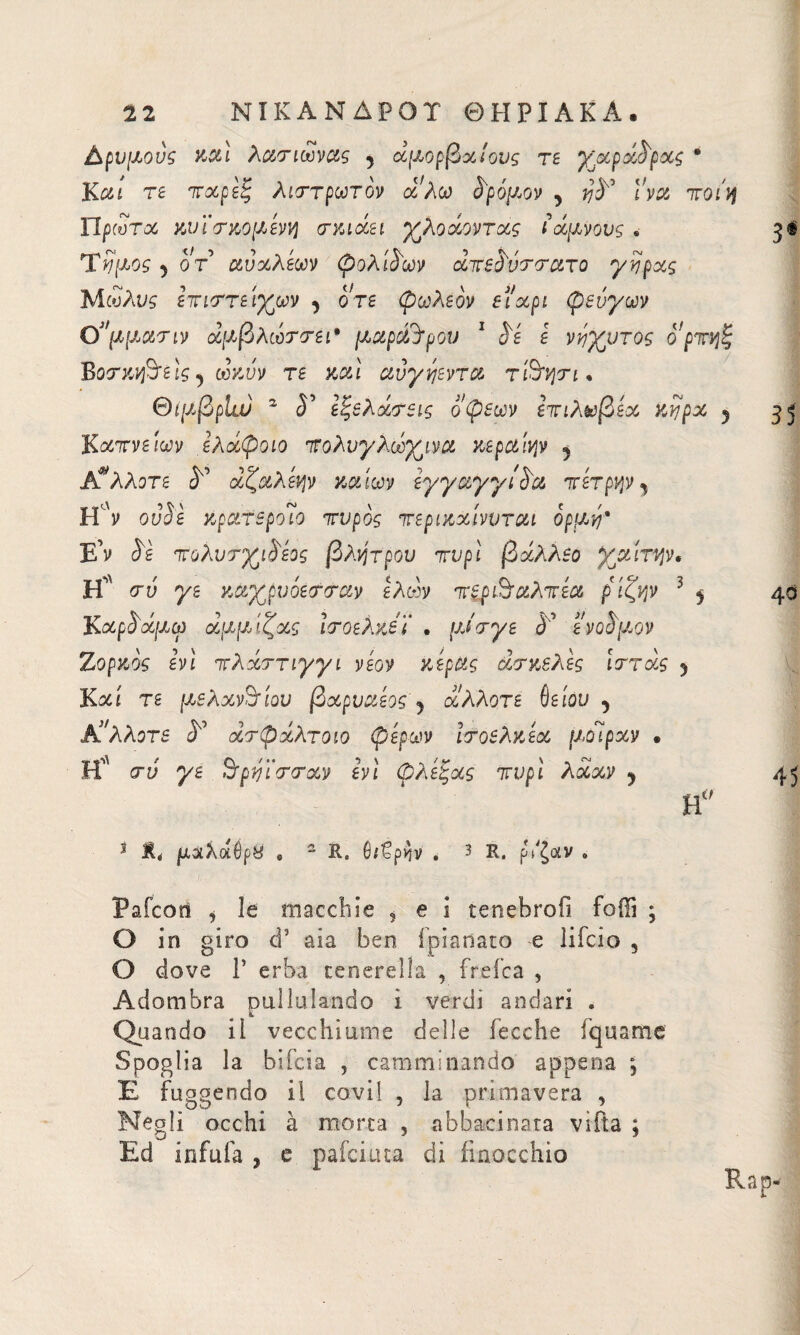 22 ΝΙΚΑΝΔΡΟΥ ΘΗΡΙΑΚΑ.
Δρυμοὺς καὶ λασιῶνας, ἀμορβαίους τε χαράδρας·
Καί τε παρὲξ λιστρωτὸν ἅλω δρόμον, ἠδ' ἵνα ποίη
Πρῶτα κυϊσκομένη σκιάει χλοάοντας ἰάμνους. 30
Τῆμος, ὅτ' αὐαλέων φολίδων ἀπεδύσσατο γῆρας
Μῶλυς ἐπιστείχων, ὅτε φωλεὸν εἴαρι φεύγων
Ὄμμασιν ἀμβλώσσει· μαράθρου ¹ δέ ἑ νήχυτος ὄρπηξ
Βοσκηθεὶς, ὠκύν τε καὶ αὐγήεντα τίθησι.
Θιμβρὴν ² δ' ἐξελάσεις ὄφεων ἐπιλωβέα κῆρα, 35
Καπνείων ἐλάφοιο πολυγλώχινα κεραίην,
Ἄλλοτε δ' ἀζαλέην καίων ἐγγαγγίδα πέτρην,
Ἣν οὐδὲ κρατεροῖο πυρὸς περικαίνυται ὁρμή·
Ἐν δὲ πολυσχιδέος βλήτρου πυρὶ βάλλεο χαίτην.
Ἢ σύ γε καχρυόεσσαν ἑλὼν περιθαλπέα ρίζην ³, 40
Καρδάμῳ ἀμμίξας ἰσοελκέϊ. μίσγε δ' ἔνοδμον
Ζορκὸς ἐνὶ πλάστιγγι νέον κέρας ἀσκελὲς ἱστὰς,
Καί τε μελανθίου βαρυαέος, ἄλλοτε θείου,
Ἄλλοτε δ' ἀσφάλτοιο φέρων ἰσοελκέα μοῖραν.
Ἢ σύ γε θρήϊσσαν ἐνὶ φλέξας πυρὶ λᾶαν, 45
Ἥ
¹ R. μαλάθρȣ. ² R. θιβρήν. ³ R. ρίζαν.
Pascon, le macchie, e i tenebrosi fossi;
O in giro d' aia ben spianato e liscio,
O dove l' erba tenerella, fresca,
Adombra pullulando i verdi andari.
Quando il vecchiume delle secche squame
Spoglia la biscia, camminando appena;
E fuggendo il covil, la primavera,
Negli occhi à morta, abbacinata vista;
Ed infusa, e pasciuta di finocchio
Rap-